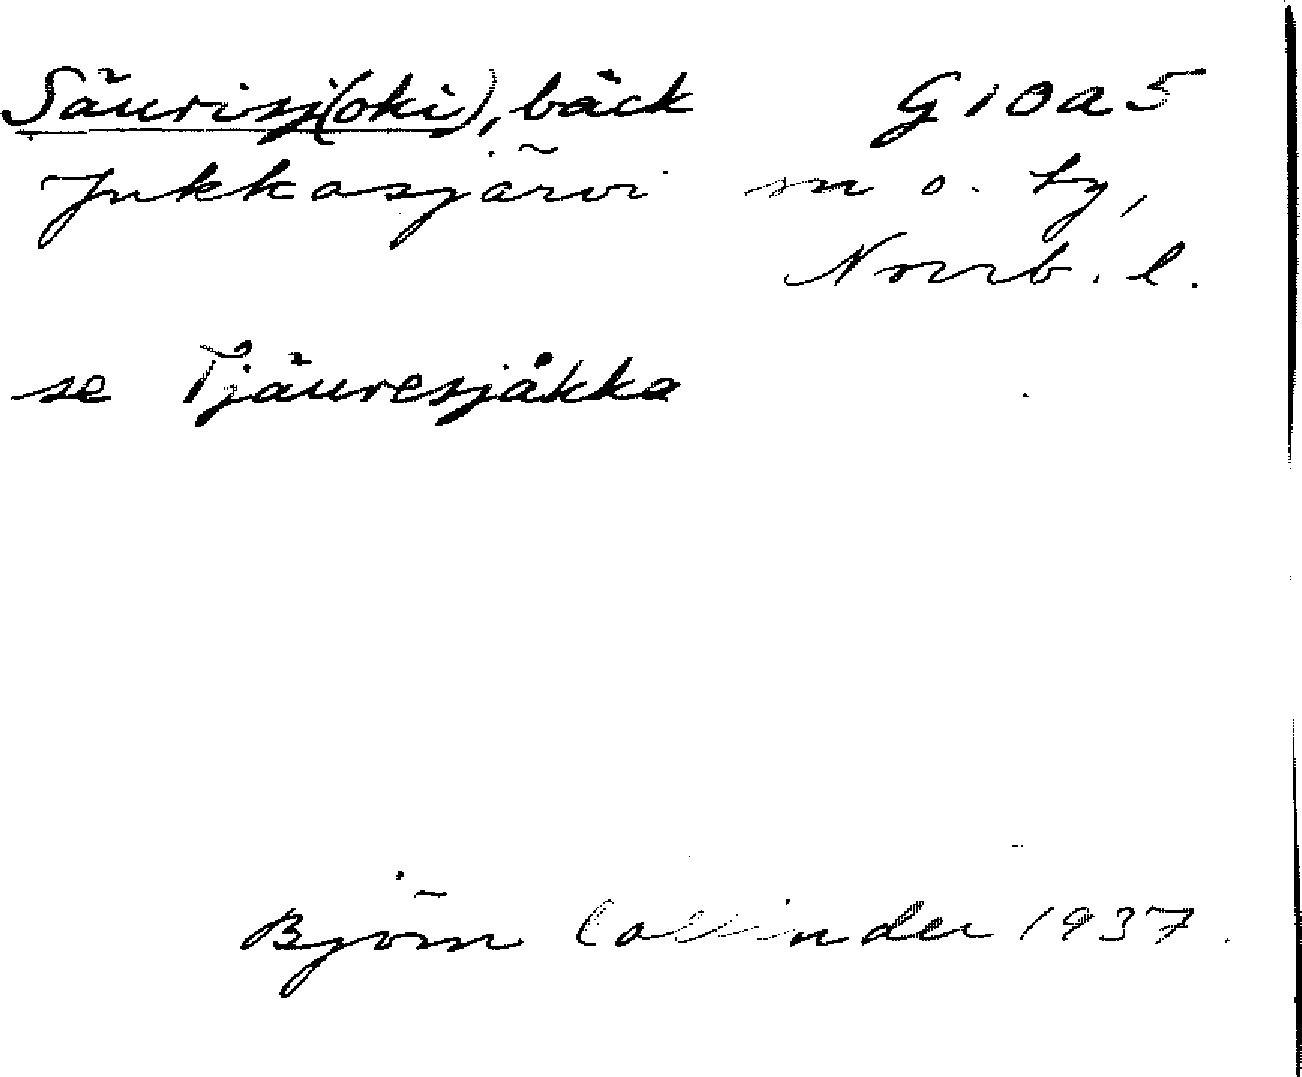 Säurisj(oki), bäck G10a5
Jukkasjärvi sn o. tg,
Norrb. l.
se Tjäuresjåkka
Björn Collinder 1937.